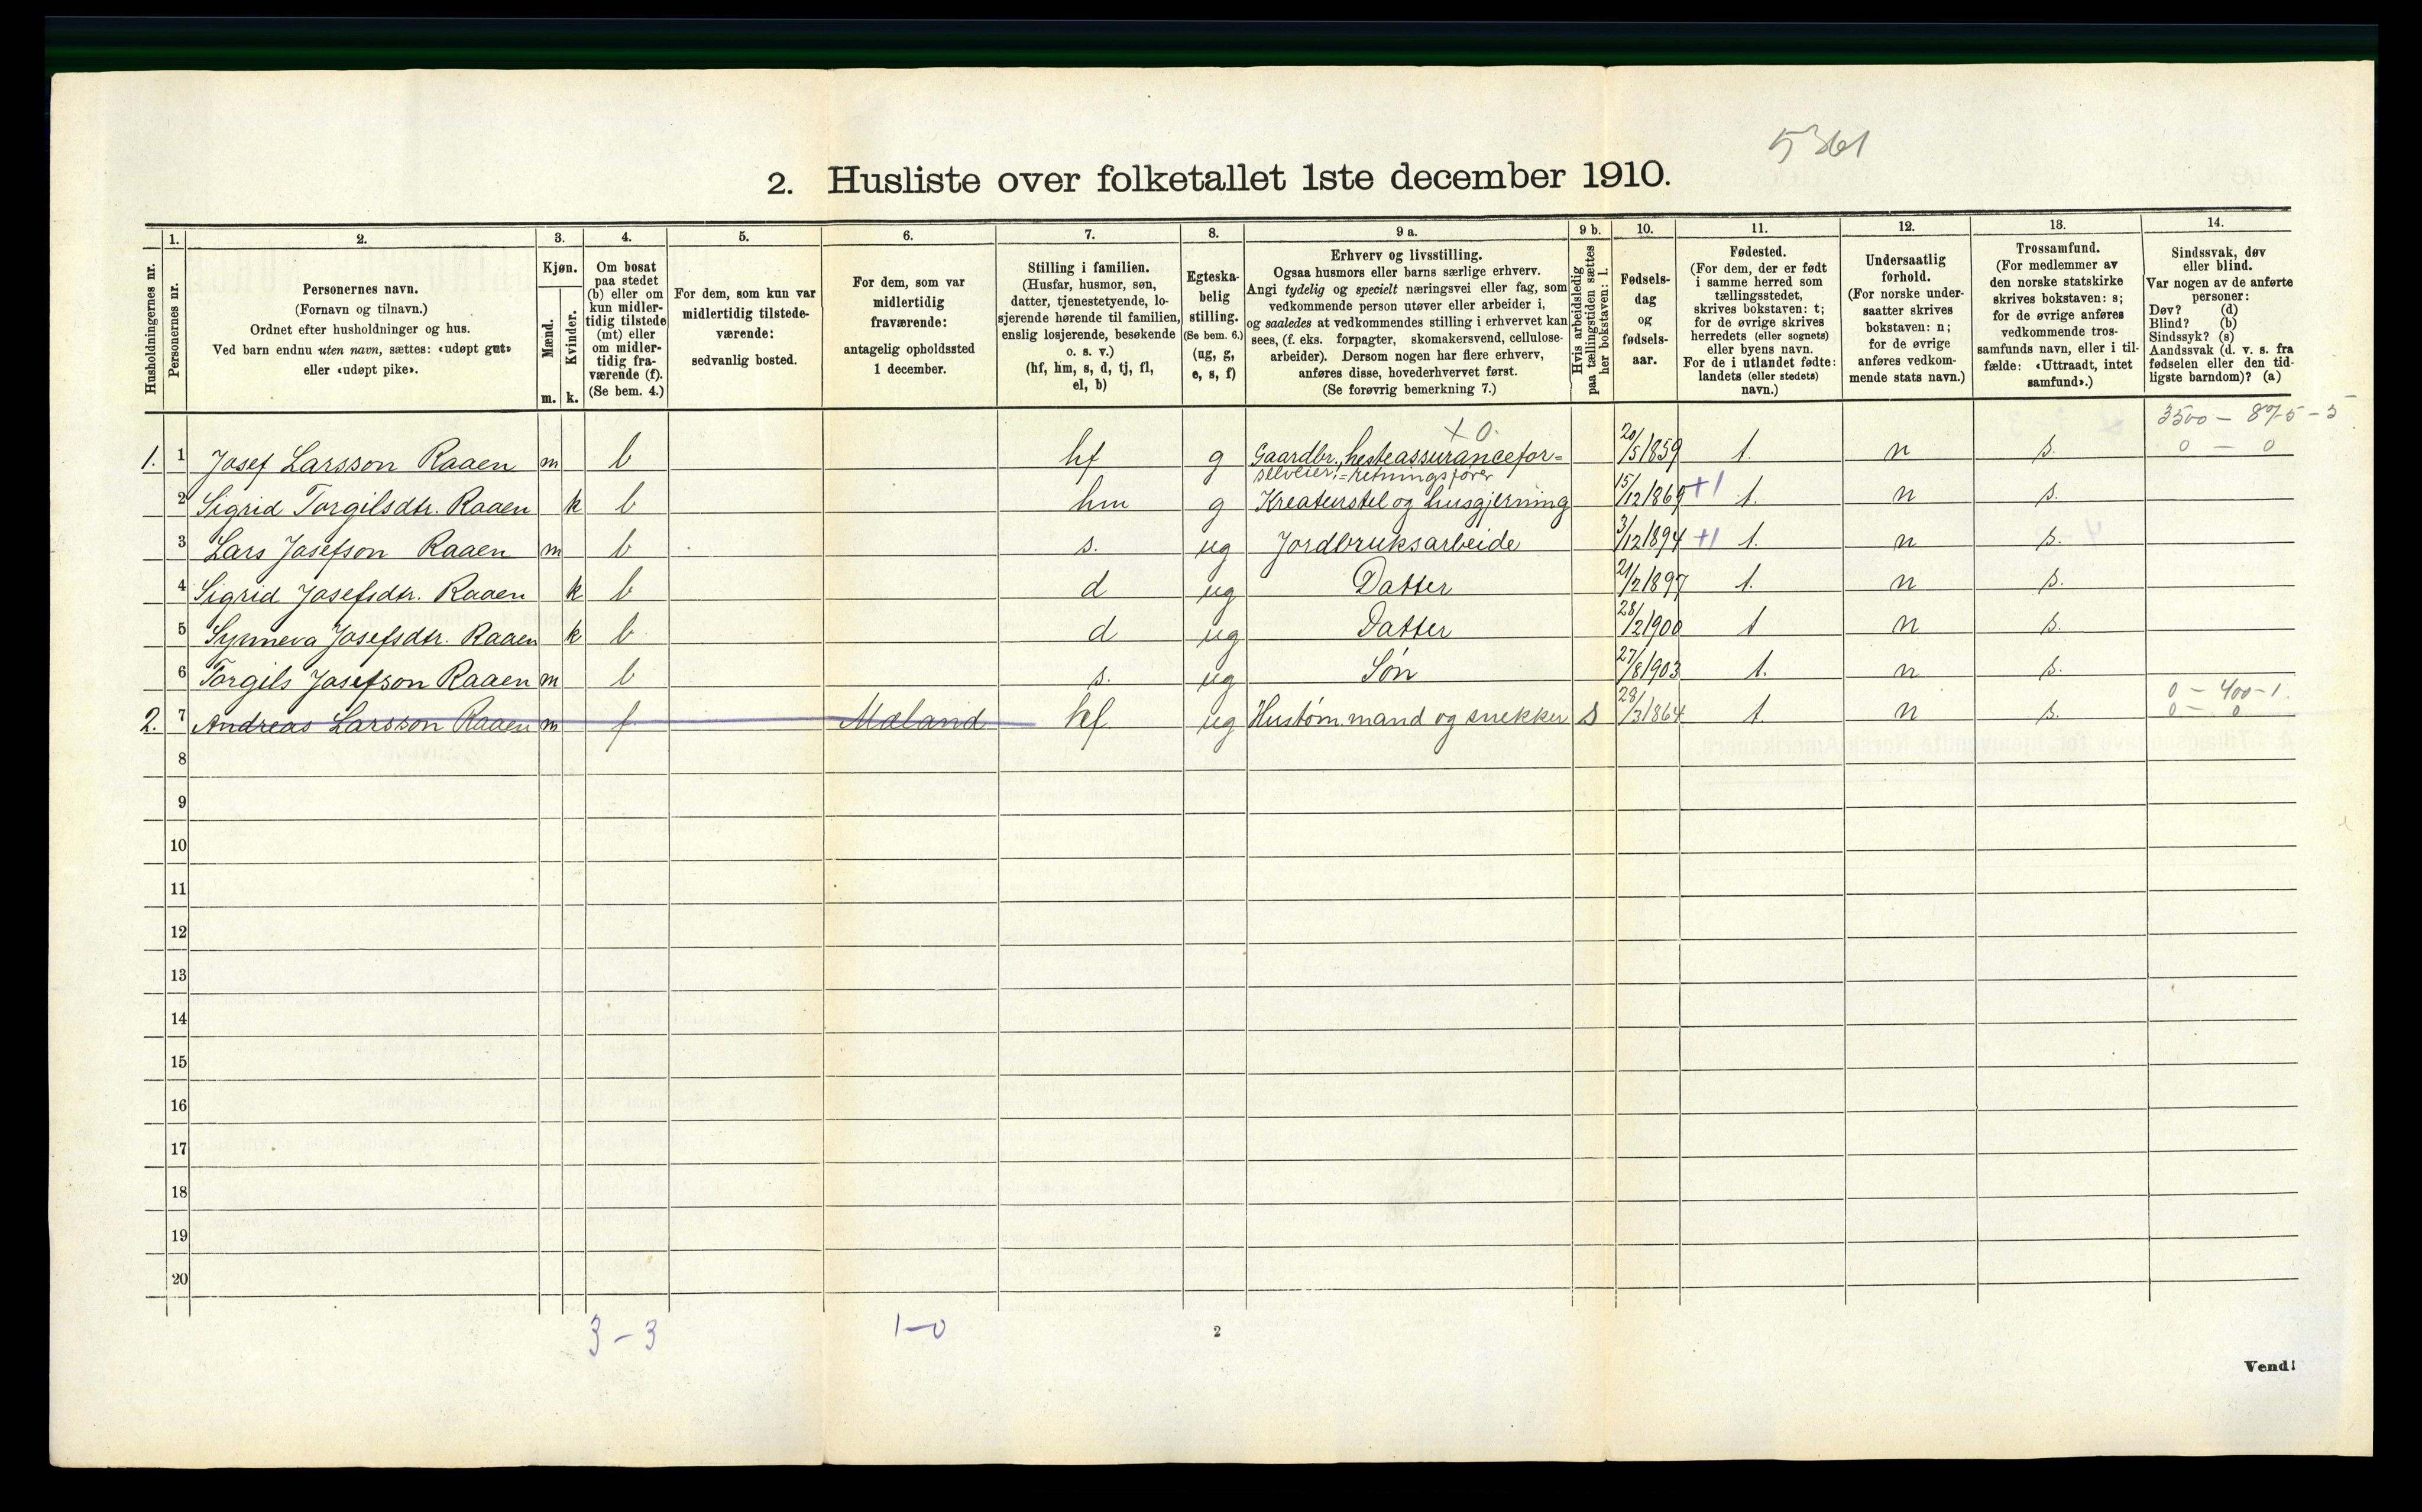 5361
2. Husliste over folketallet 1ste december 1910.
Husholdningernes nr.
1.
Personernes nr.
2.
Personernes navn.
(Fornavn og tilnavn.)
Ordnet efter husholdninger og hus.
Ved barn endnu uten navn, sættes: «udøpt gut»
eller «udøpt pike».
3.
Kjøn.
Mænd.
m.
Kvinder.
k.
4.
Om bosat
paa stedet
(b) eller om
kun midler-
tidig tilstede
(mt) eller
om midler-
tidig fra-
værende (f).
(Se bem. 4.)
5.
For dem, som kun var
midlertidig tilstede-
værende:
sedvanlig bosted.
6.
For dem, som var
midlertidig
fraværende:
antagelig opholdssted
1 december.
7.
Stilling i familien.
(Husfar, husmor, søn,
datter, tjenestetyende, lo-
sjerende hørende til familien,
enslig losjerende, besøkende
o. s. v.)
(hf, hm, s, d, tj, fl,
el, b)
8.
Egteska-
belig
stilling.
(Se bem. 6.)
(ug, g,
e, s, f)
9 a.
Erhverv og livsstilling.
Ogsaa husmors eller barns særlige erhverv.
Angi tydelig og specielt næringsvei eller fag, som
vedkommende person utøver eller arbeider i,
og saaledes at vedkommendes stilling i erhvervet kan
sees, (f. eks. forpagter, skomakersvend, cellulose-
arbeider). Dersom nogen har flere erhverv,
anføres disse, hovederhvervet først.
(Se forøvrig bemerkning 7.)
9 b.
Hvis arbeidsledig
paa tællingstiden sættes
her bokstaven: l.
10.
Fødsels-
dag
og
fødsels-
aar.
11.
Fødested.
(For dem, der er født
i samme herred som
tællingsstedet,
skrives bokstaven: t;
for de øvrige skrives
herredets (eller sognets)
eller byens navn.
For de i utlandet fødte:
landets (eller stedets)
navn.)
12.
Undersaatlig
forhold.
(For norske under-
saatter skrives
bokstaven: n;
for de øvrige
anføres vedkom-
mende stats navn.)
13.
Trossamfund.
(For medlemmer av
den norske statskirke
skrives bokstaven: s;
for de øvrige anføres
vedkommende tros-
samfunds navn, eller i til-
fælde: «Uttraadt, intet
samfund».)
14.
Sindssvak, døv
eller blind.
Var nogen av de anførte
personer:
Døv? (d)
Blind? (b)
Sindssyk? (s)
Aandssvak (d. v. s. fra
fødselen eller den tid-
ligste barndom)? (a)
x 0. 3500 - 875-5
1. 1 Josef Larsson Raaen m b hf g Gaardbr., hesteassurancefor= 20/5 1859 t. n s. 0 - 0
selveier. =retningsfører
2 Sigrid Torgilsdtr. Raaen k b hm g Kreaturstel og husgjerning 15/12 1869 +1 t. n s.
3 Lars Josefson Raaen m b s. ug Jordbruksarbeide 3/12 1894 +1 t. n s.
4 Sigrid Josefsdtr. Raaen k b d ug Datter 21/2 1897 t. n s.
5 Synneva Josefsdtr. Raaen k b d ug Datter 28/2 1900 t n s.
6 Torgils Josefson Raaen m b s. ug Søn 27/8 1903 t. n s.
0 - 400-1.
2. 7 Andreas Larsson Raaen m f Mæland hf ug Hustøm.mand og snekker s 28/3 1864 t. n s. 0 - 0
8
9
10
11
12
13
14
15
16
17
18
19
20
3-3 1-0 2
Vend!